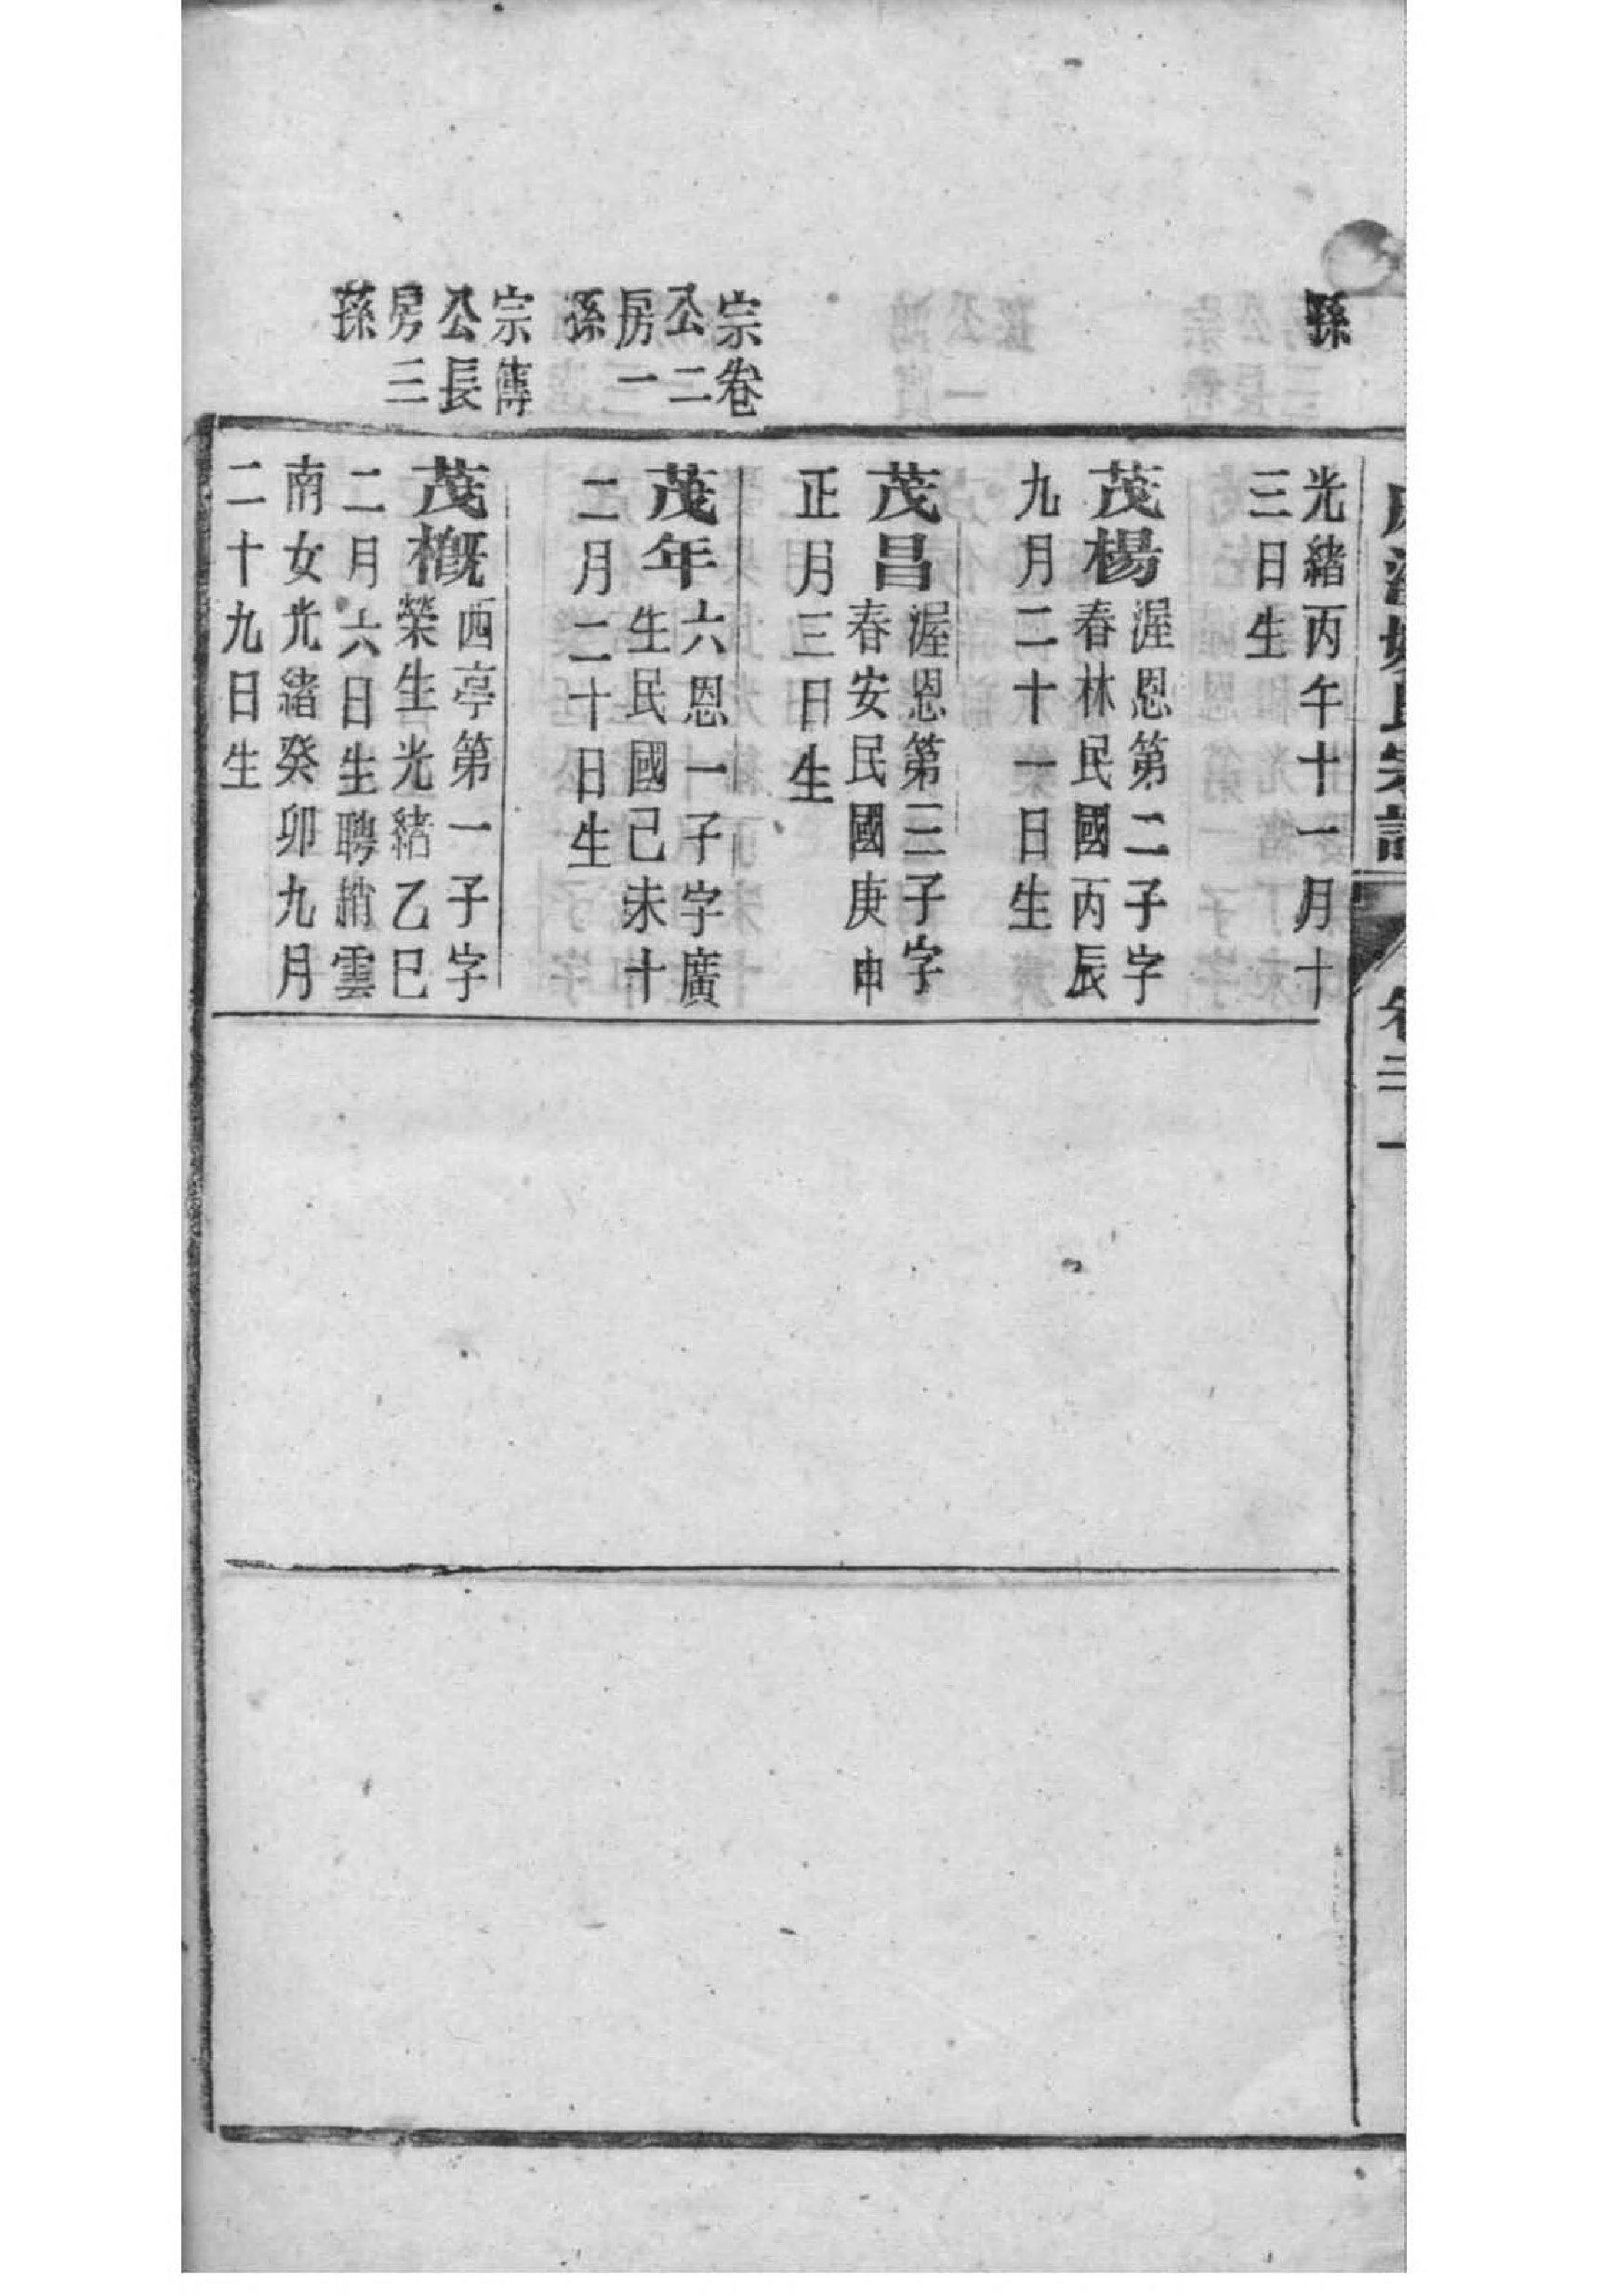 孫
光緒丙午十一月十
三日生
茂楊
渥恩第二子字
春林民國丙辰
九月二十一日生
茂昌
渥恩第三子字
春安民國庚申
正月三日生
宗卷
公二
房一
孫
茂年
六恩一子字廣
生民國己未十
二月二十日生
宗傳
公長
房三
孫
茂概
西亭第一子字
榮生光緒乙巳
二月六日生聘蕭雲
南女光緒癸卯九月
二十九日生
卷二一